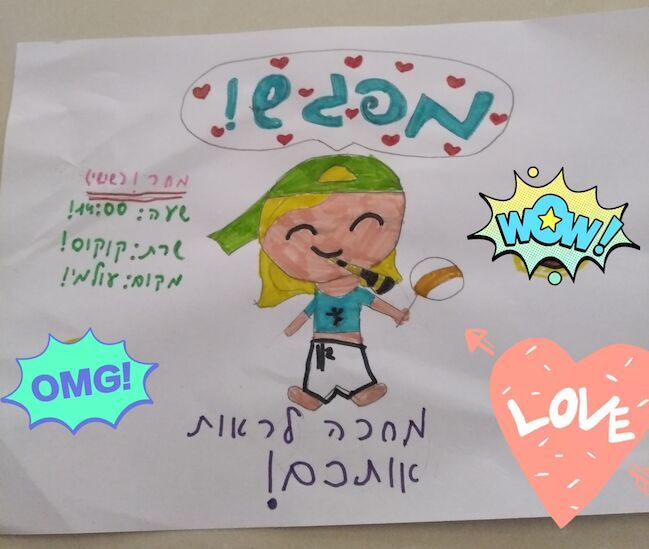 מפגש!
מחר ו' בשישי
שעה: 14:00!
שרת: קוקוס!
מקום: עולמי!
WOW!
OMG!
LOVE
מחכה לראות
אותכם!